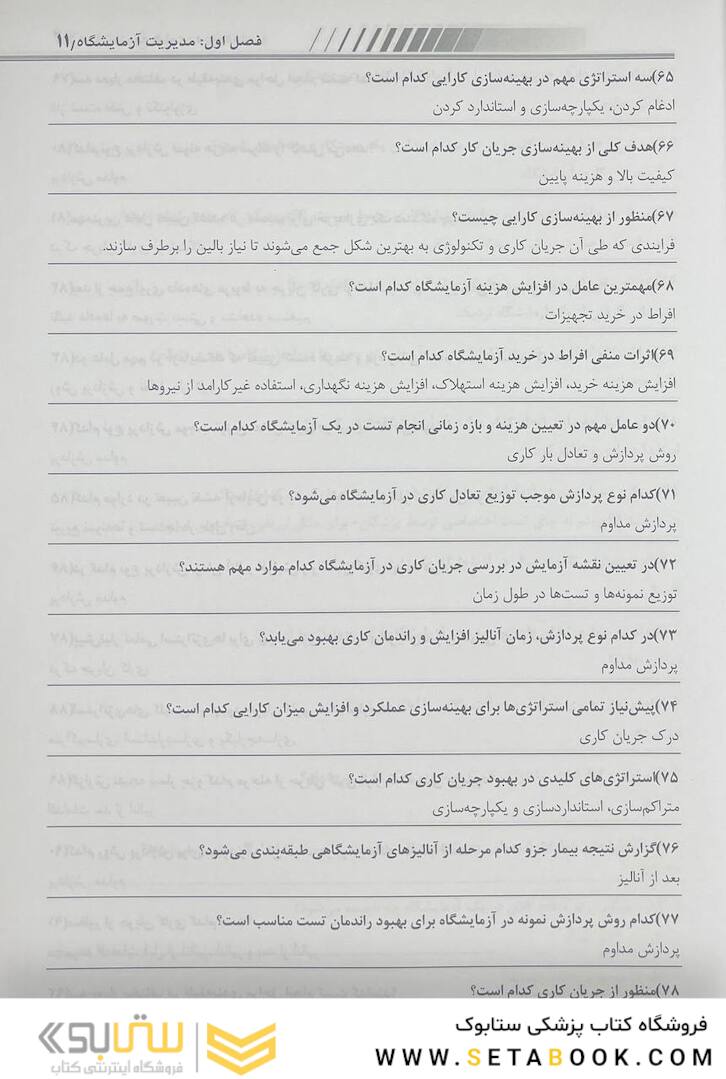 فصل اول: مدیریت آزمایشگاه/ ۱۱
۶۵)سه استراتژی مهم در بهینه‌سازی کارایی کدام است؟
ادغام کردن، یکپارچه‌سازی و استاندارد کردن
۶۶)هدف کلی از بهینه‌سازی جریان کار کدام است؟
کیفیت بالا و هزینه پایین
۶۷)منظور از بهینه‌سازی کارایی چیست؟
فرایندی که طی آن جریان کاری و تکنولوژی به بهترین شکل جمع می‌شوند تا نیاز بالین را برطرف سازند.
۶۸)مهمترین عامل در افزایش هزینه آزمایشگاه کدام است؟
افراط در خرید تجهیزات
۶۹)اثرات منفی افراط در خرید آزمایشگاه کدام است؟
افزایش هزینه خرید، افزایش هزینه استهلاک، افزایش هزینه نگهداری، استفاده غیرکارامد از نیروها
۷۰)دو عامل مهم در تعیین هزینه و بازه زمانی انجام تست در یک آزمایشگاه کدام است؟
روش پردازش و تعادل بار کاری
۷۱)کدام نوع پردازش موجب توزیع تعادل کاری در آزمایشگاه می‌شود؟
پردازش مداوم
۷۲)در تعیین نقشه آزمایش در بررسی جریان کاری در آزمایشگاه کدام موارد مهم هستند؟
توزیع نمونه‌ها و تست‌ها در طول زمان
۷۳)در کدام نوع پردازش، زمان آنالیز افزایش و راندمان کاری بهبود می‌یابد؟
پردازش مداوم
۷۴)پیش‌نیاز تمامی استراتژی‌ها برای بهینه‌سازی عملکرد و افزایش میزان کارایی کدام است؟
درک جریان کاری
۷۵)استراتژی‌های کلیدی در بهبود جریان کاری کدام است؟
متراکم‌سازی، استانداردسازی و یکپارچه‌سازی
۷۶)گزارش نتیجه بیمار جزو کدام مرحله از آنالیزهای آزمایشگاهی طبقه‌بندی می‌شود؟
بعد از آنالیز
۷۷)کدام روش پردازش نمونه در آزمایشگاه برای بهبود راندمان تست مناسب است؟
پردازش مداوم
۷۸)منظور از جریان کاری کدام است؟
فروشگاه کتاب پزشکی ستابوک
WWW.SETABOOK.COM
ستابوک
فروشگاه اینترنتی کتاب